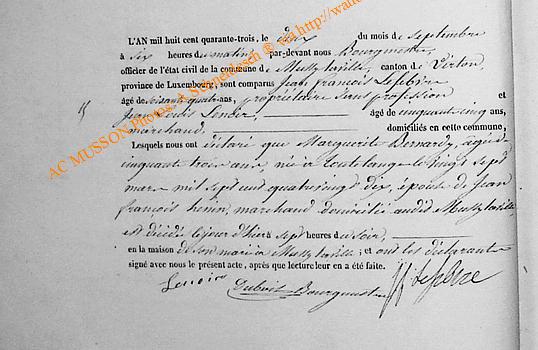 L'AN mil huit cent quarante-trois, le dix du mois de Septembre
à six heures du matin par-devant nous Bourgmestre,
officier de l'état civil de la commune de Mussy la ville, canton de Virton,
province de Luxembourg, sont comparus Jean François Lefebvre
âgé de soixante quatre ans, propriétaire sans profession et
15
Jean Louis Lenoir, âgé de cinquante cinq ans,
marchand, domiciliés en cette commune,
Lesquels nous ont déclaré que Marguerite Bernardy, âgée de
cinquante trois ans, née à toutelange le vingt sept
mars mil sept cent quatre vingt dix, épouse de Jean
françois hénin, marchand domicilié audit Mussy laville,
est décédé le jour d'hier à sept heures du soir,
en la maison de son mari à Mussy laville; et ont les déclarants
signé avec nous le présent acte, après que lecture leur en a été faite.
Lenoir Dubois Bourgmestre JF Lefebvre
AC MUSSON Photos: A. Schneidesch @ via http://